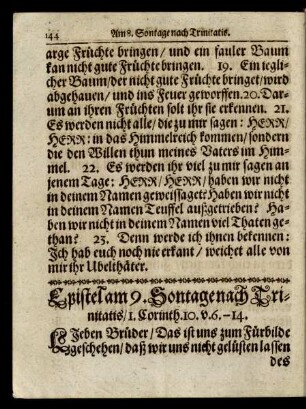 144 Am 8. Sontage nach Trinitatis.
arge Früchte bringen/ und ein fauler Baum
kan nicht gute Früchte bringen. 19. Ein ieglic
cher Baum/ der nicht gute Früchte bringet/ wird
abgehauen/ und ins Feuer geworffen. 20. Dar-
um an ihren Früchten solt ihr sie erkennen. 21.
Es werden nicht alle/ die zu mir sagen: HERR/
HERR: in das Himmelreich kommen/ sondern
die den Willen thun meines Vaters im Him-
mel. 22. Es werden ihr viel zu mir sagen an
jenem Tage: HERR/ HERR/ haben wir nicht
in deinem Namen geweissaget? Haben wir nicht
in deinem Namen Teuffel außgetrieben? Ha-
ben wir nicht in deinem Namen viel Thaten ge-
than? 23. Denn werde ich ihnen bekennen:
Ich hab euch noch nie erkant/ weichet alle von
mir ihr Ubelthäter.
Epistel am 9. Sontage nach Tri-
nitatis/ 1. Corinth. 10. v. 6.-14.
Lieben Brüder/ Das ist uns zum Fürbilde
geschehen/ daß wir uns nicht gelüsten lassen
des